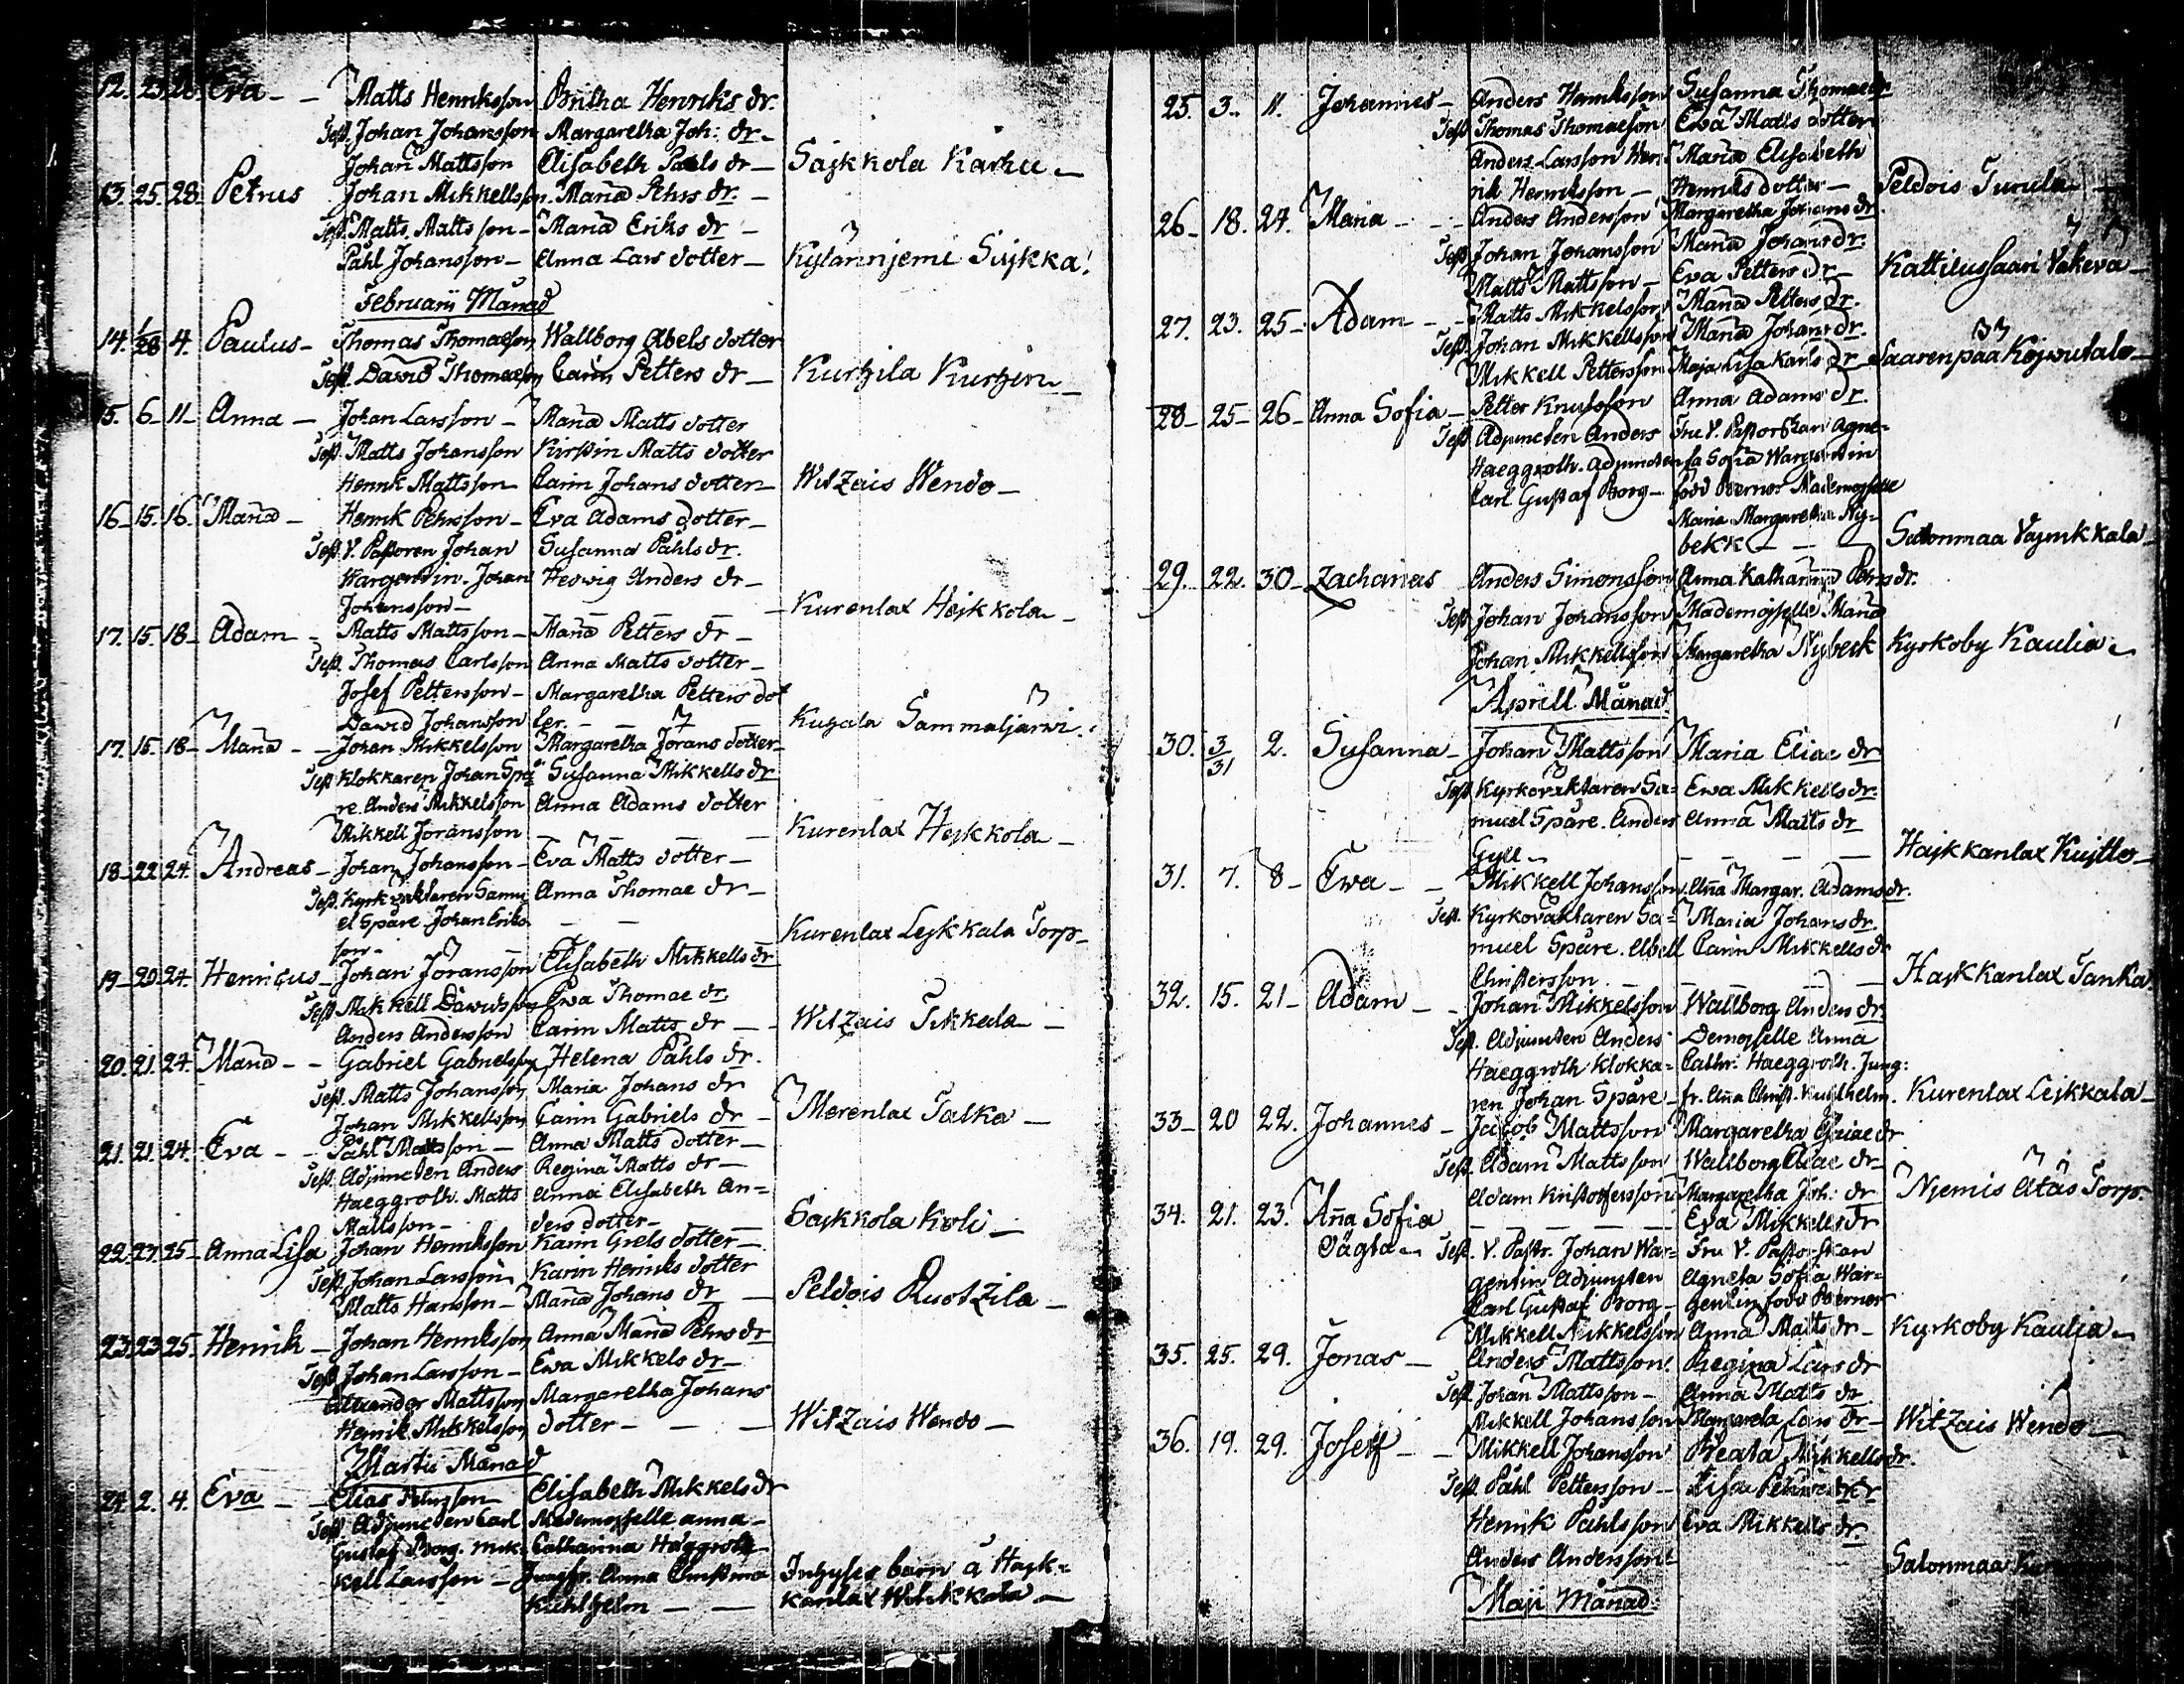 12. 23. 28. Eva - - Matts Henriksson Britha Henriks dr.
Test. Johan Johansson Margaretha Joh: dr -
Johan Mattsson Elisabeth Påls dr - Säjkkola Karhu -
13. 25. 28. Petrus Johan Mikkellsson Maria Pehrs dr. -
Test. Matts Mattsson - Maria Eriks dr -
Påhl Johansson - Anna Lars dotter - Kylännjemi Sujkka.
Februarii Månad
14. 1/28 4. Paulus - Thomas Thomaeson Wallborg Abels dotter
Test. David Thomaeson Carin Petters dr - Kurhila Kurhinen -
15. 6 - 11 - Anna - Johan Larsson - Maria Matts dotter
Test. Matts Johansson Kirstin Matts dotter
Henrik Mattsson Carin Johans dotter - Witzais Wendo -
16 - 15. 16. Maria - Henrik Pehrsson - Eva Adams dotter -
Test. V. Pastoren Johan Susanna Påhls dr.
Wargentin. Johan Hedvig Anders dr -
Johansson - - - - Kurenlax Hejkkola -
17. 15. 18 - Adam - Matts Mattsson - Maria Petters dr -
Test. Thomas Carlsson Anna Matts dotter -
Josef Pettersson - Margaretha Petters dot
David Johansson ter. - - Kuhala Sammaljärwi.
17. 15. 18 - Maria - - Johan Mikkelsson Margaretha Jörans dotter -
Test. Klokkaren Johan Spå Susanna Mikkells dr
re. Anders Mikkelsson Anna Adams dotter
Mikkell Jöransson - - - - Kurenlax Hejkkola -
18 - 22. 24. Andreas - Johan Johansson - Eva Matts dotter -
Test. Kyrkväktaren Samu Anna Thomae dr -
el Spåre Johan Eriks - -
son - - Kurenlax Lejkkala Torp -
19 - 20. 24. Henricus - Johan Jöransson Elisabeth Mikkells dr
Test. Mikkell Davidsson Ewa Thomae dr
Anders Andersson Carin Matts dr - - Witzais Tikkala -
20. 21. 24. Maria - - Gabriel Gabrielsson Helena Påhls dr.
Test. Matts Johansson Maria Johans dr
Johan Mikkellsson Carin Gabriels dr - Merenlax Talka -
21. 21. 24. Eva - - Påhl Mattsson - Anna Matts dotter -
Test. Adjuncten Anders Regina Matts dr -
Haeggroth. Matts Anna Elisabeth An=
Mattsson - ders dotter - - Säjkkola Koli -
22. 27. 25 - Anna Lisa Johan Henriksson Karin Grels dotter -
Test. Johan Larsson Karin Henriks dotter
Matts Hansson - Maria Johans dr - Peldois Ruotzila -
23. 23. 25. Henrik - Johan Henriksson Anna Maria Pehrs dr
Test. Johan Larsson - Ewa Mikkels dr -
Alexander Mattsson Margaretha Johans
Henrik Mikkelsson dotter - - - Witzais Wendo -
Martii Månad
24. 2. 4. Eva - - Elias Elisabeth Mikkels dr
Test. Adjuncten Carl Mademoiselle Anna -
Gustaf Borg. Mik= Catharina Häggroth
kell Larsson - Jungfr. Anna Christina Inhyses barn å Hajk=
Kuhlhelm - - kanlax
25. 3. 11. Johannes - Anders Henriksson Susanna Thomae dr
Test. Thomas Thomaeson Ewa Matts dotter
Anders Larsson Hen= Maria Elisabeth
rik Henriksson - Henriks dotter - Peldois Turula -
26 - 18. 24. Maria - - Anders Andersson Margaretha Johans dr
Test. Johan Johansson Maria Johans dr.
Matts Mattsson - Eva Petters dr - Kattilussaari Väkevä -
27. 23. 25 - Adam - - Matts Mikkelsson Maria Petters dr.
Test. Johan Mikkellsson Maria Johans dr.
Mikkell Pettersson Maja Lisa Karls dr Saarenpää Kojwutalo -
28 - 25 - 26 - Anna Sofia - Petter Knutsson Anna Adams dr.
Test. Adjuncten Anders Fru V. Pastorskan Agne=
Haeggroth. Adjuncten ta Sofia Wargentin
Carl Gustaf Borg - född Berner Mademoiselle
Maria Margaretha Ny=
bekk - - - Salonmaa Vajnikkala -
29. 22. 30 - Zacharias Anders Simonsson Anna Katharina Pehrs dr.
Test. Johan Johansson Mademoiselle Maria
Johan Mikkellsson Margaretha Nybeck Kyrkoby Kaulia -
Aprill Månad
30. 3/31 2. Susanna - Johan Mattsson Maria Eliae dr
Test. Kyrkoväktaren Sa= Ewa Mikkells dr
muel Spåre. Anders Anna Matts dr
Gyll - - - - - Hajkkanlax Kujtto -
31. 7. 8 - Ewa - - Mikkell Johansson Aña Margar. Adams dr.
Test. Kyrkoväktaren Sa= Maria Johans dr.
muel Spåre. Abell Carin Mikkells dr
Christersson - - - - Hajkkanlax Tanka
32. 15. 21 - Adam - - Johan Mikkelsson Wallborg Anders dr.
Test. Adjuncten Anders Demoiselle Anna
Haeggroth Klokka= Cathr. Haeggroth. Jung:
ren Johan Spåre - fr. Aña Christ. Kuhlhelm. Kurenlax Lejkkala -
33 - 20 22. Johannes - Jacob Mattsson Margaretha Eliae dr
Test. Adam Mattsson Wallborg Eliae dr
Adam Kristoffersson Margaretha Joh: dr Njemis Ätäs Torp.
34. 21. 23. Aña Sofia - - - - Eva Mikkells dr
Oägta - Test. V. Pastr. Johan War= Fru V. Pastorskan
gentin Adjuncten Agneta Sofia War=
Carl Gustaf Borg - gentin född Berner
Mikkell Mikkelsson Anna Matts dr - Kyrkoby Kaulia -
35. 25. 29. Jonas - Anders Mattsson. Regina Lars dr
Test. Johan Mattsson - Anna Matts dr
Mikkell Johansson Margareta Lars dr - Witzais Wendo -
36. 19. 29. Joseff - - Mikkell Johansson Beata Mikkells dr.
Test. Påhl Pettersson - Lisa
Henrik Påhlsson Eva Mikkells dr
Anders Andersson - Salonmaa
Maji Månad